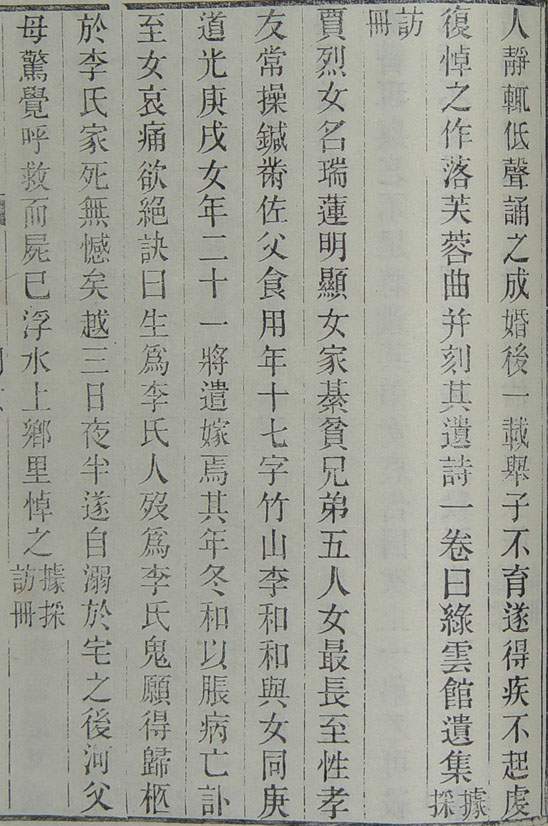 人靜輒低聲誦之成婚後一載舉子不育遂得疾不起虔
復悼之作落芙蓉曲并刻其遺詩一卷曰綠雲館遺集據採
訪冊
賈烈女名瑞蓮明顯女家綦貧兄弟五人女最長至性孝
友常操鍼黹佐父食用年十七字竹山李和和與女同庚
道光庚戌女年二十一將遣嫁焉其年冬和以脹病亡訃
至女哀痛欲絕訣曰生爲李氏人歿爲李氏鬼願得歸柩
於李氏家死無憾矣越三日夜半遂自溺於宅之後河父
母驚覺呼救而屍已浮水上鄉里悼之據採訪冊